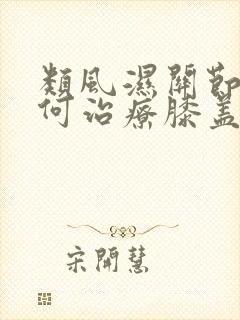 類風濕關節
何治療膝盖
宋開慧